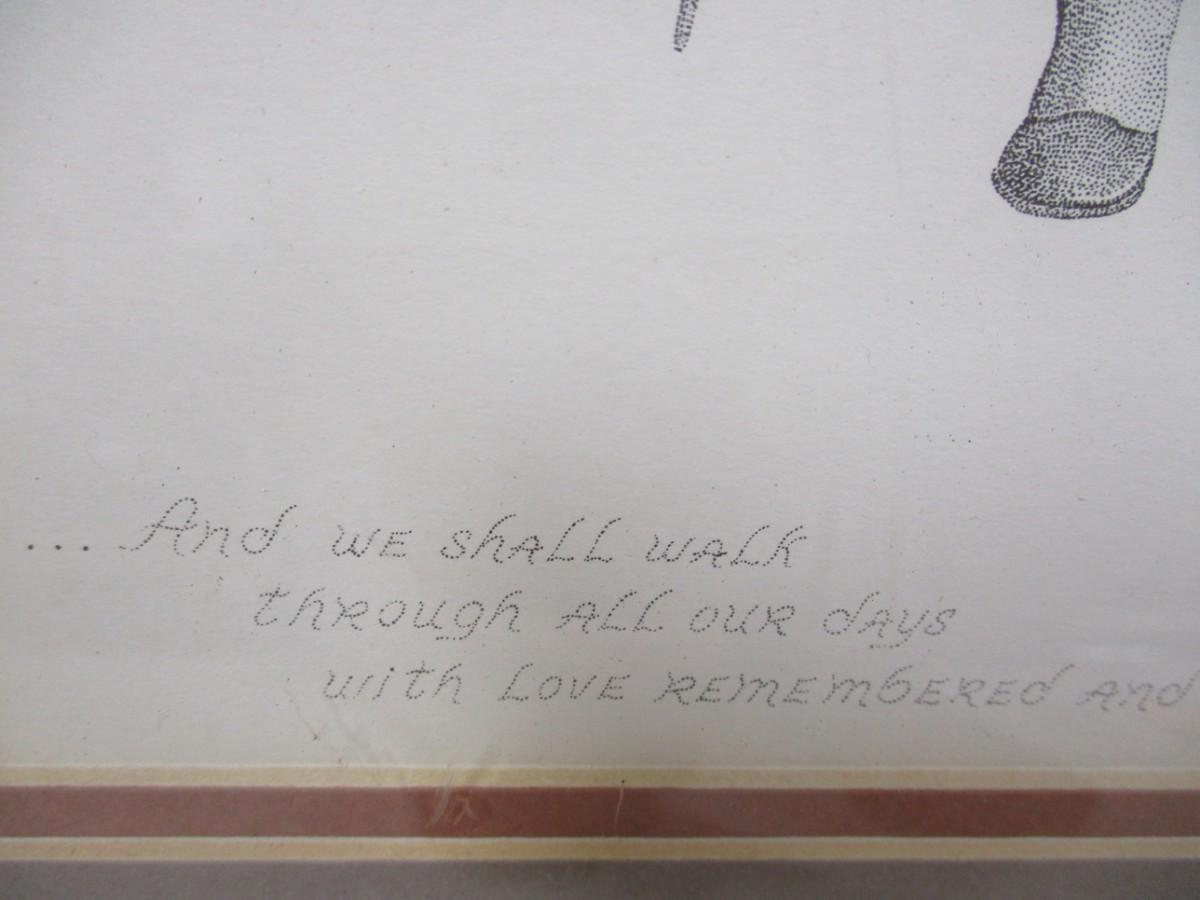 ... And we shall walk
through all our days
with love remembered and